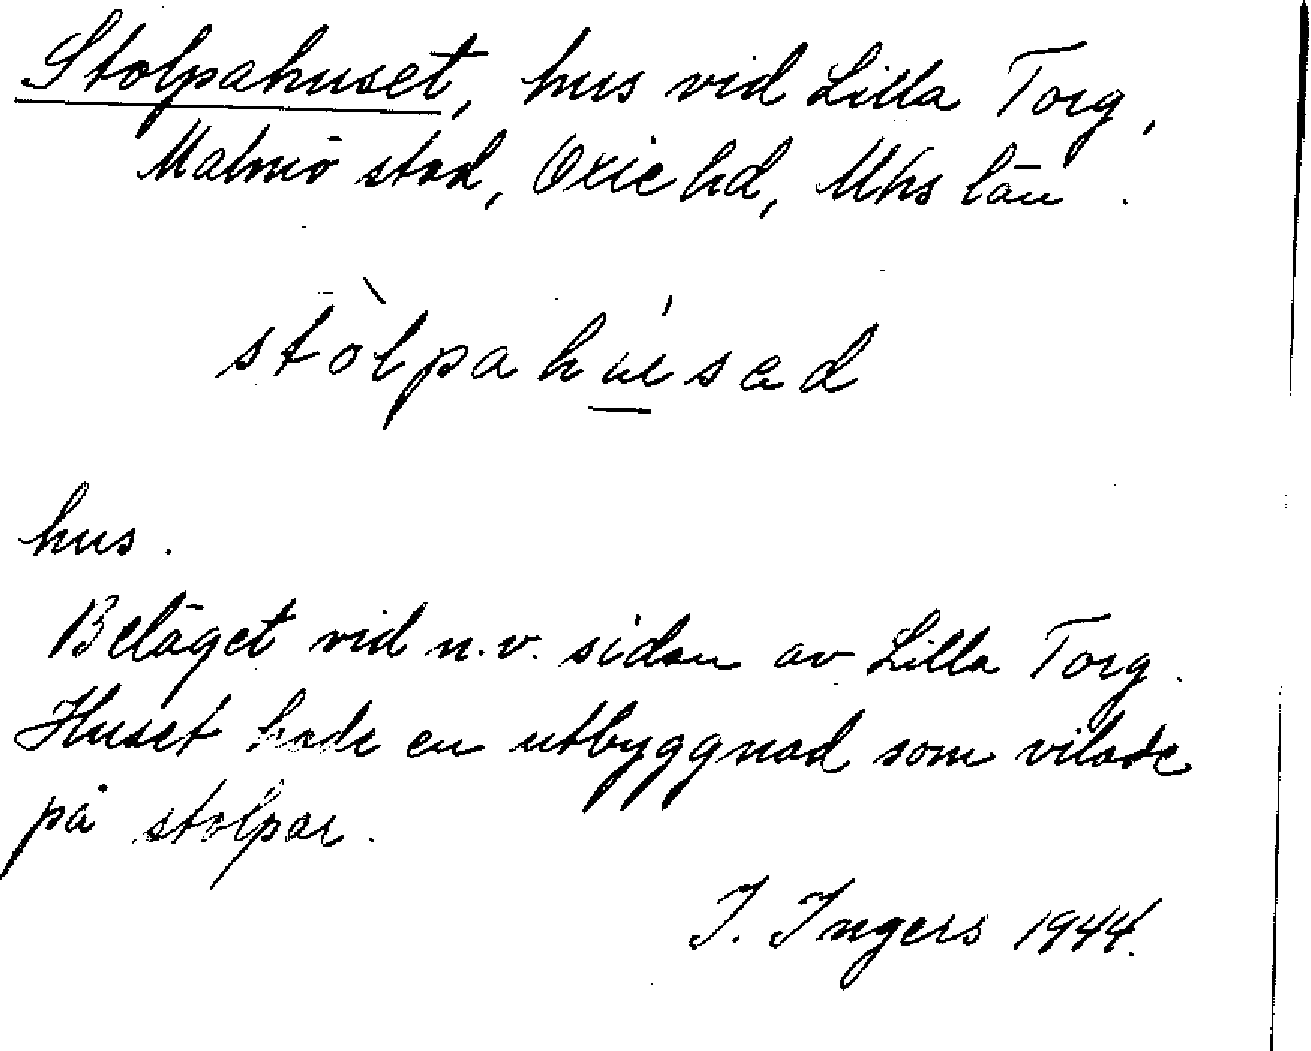 Stolpahuset, hus vid Lilla Torg,
Malmö stad, Oxie hd, Mhs län.
stòlpahúsad
hus.
Beläget vid n.v. sidan av Lilla Torg.
Huset hade en utbyggnad som vilade
på stolpar.
I. Ingers 1944.